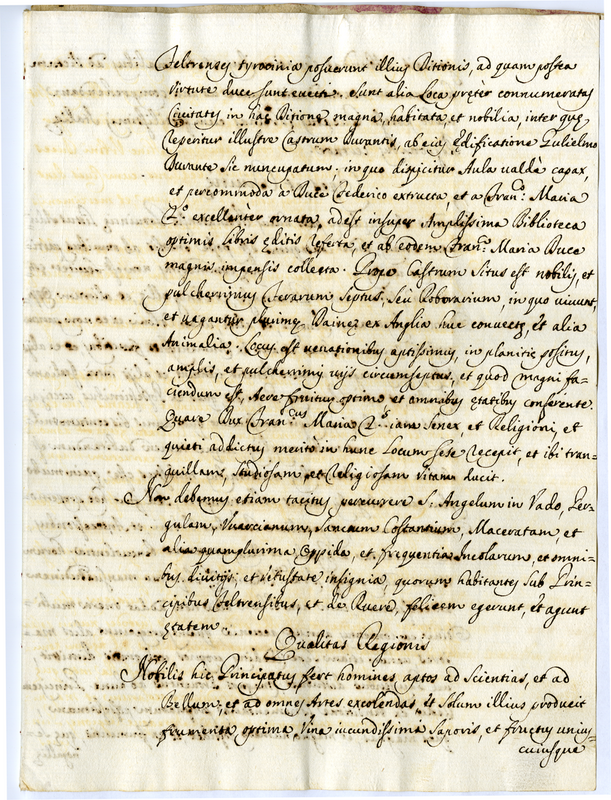 Feltrenses tyrocinia posuerunt illius Ditionis, ad quam postea
virtute duce sunt evecti. Sunt alia Loca preter connumeratas
Civitates in hac Ditione magna, habitata, et nobilia, inter quę
Reperitur illustre Castrum Durantis, ab eius Ędificatione Gulielmo
Durante sic nuncupatum. in quo dispicitur Aula valdè capax,
et percommoda à Duce Federico extracta, et a Fran.º Maria
2.º excellenter ornata, adest insuper Amplissima Biblioteca
optimis Libris ęditis referta, et ab eodem Fran.º Maria Duce
magnis impensis collecta. Prope Castrum Situs est nobilis, et
pulcherrimus Ferarum septus, seu Roborarium, in quo vivunt,
et vagantur plurimę Dainez ex Anglia huc convectę, et alia
Animalia. Locus est venationibus aptissimus, in planitie positus,
amplis, et pulcherrimis vijs circumseptus, et quod magni fa-
ciendum est, Aere fruitur optimo et omnibus ętatibus conferente.
Quare Dux Fran.cus Maria 2.s iam senex et Religioni, et
quieti addictus meritò in hunc Locum sese recepit, et ibi tran-
quillam, studiosam, et Religiosam vitam ducit.
Non debemus etiam tacitus percurrere S. Angelum in Vado, Per-
gulam, Sanctum Costantium, Maceratam, et
alia quamplurima oppida, et frequentia Incolarum, et omni-
bus divitijs, et vetustate insignia, quorum habitantes sub Prin-
cipibus Feltrensibus, et de Ruere, felicem egerunt, et agunt
ętatem.
Qualitas Regionis
Nobilis hic Principatus fert homines aptos ad Scientias, et ad
Bellum, et ad omnes Artes excolendas, et Solum illius producit
frumenta optima, Vina iucundissima Saporis, et fructus unius-
cuiusque